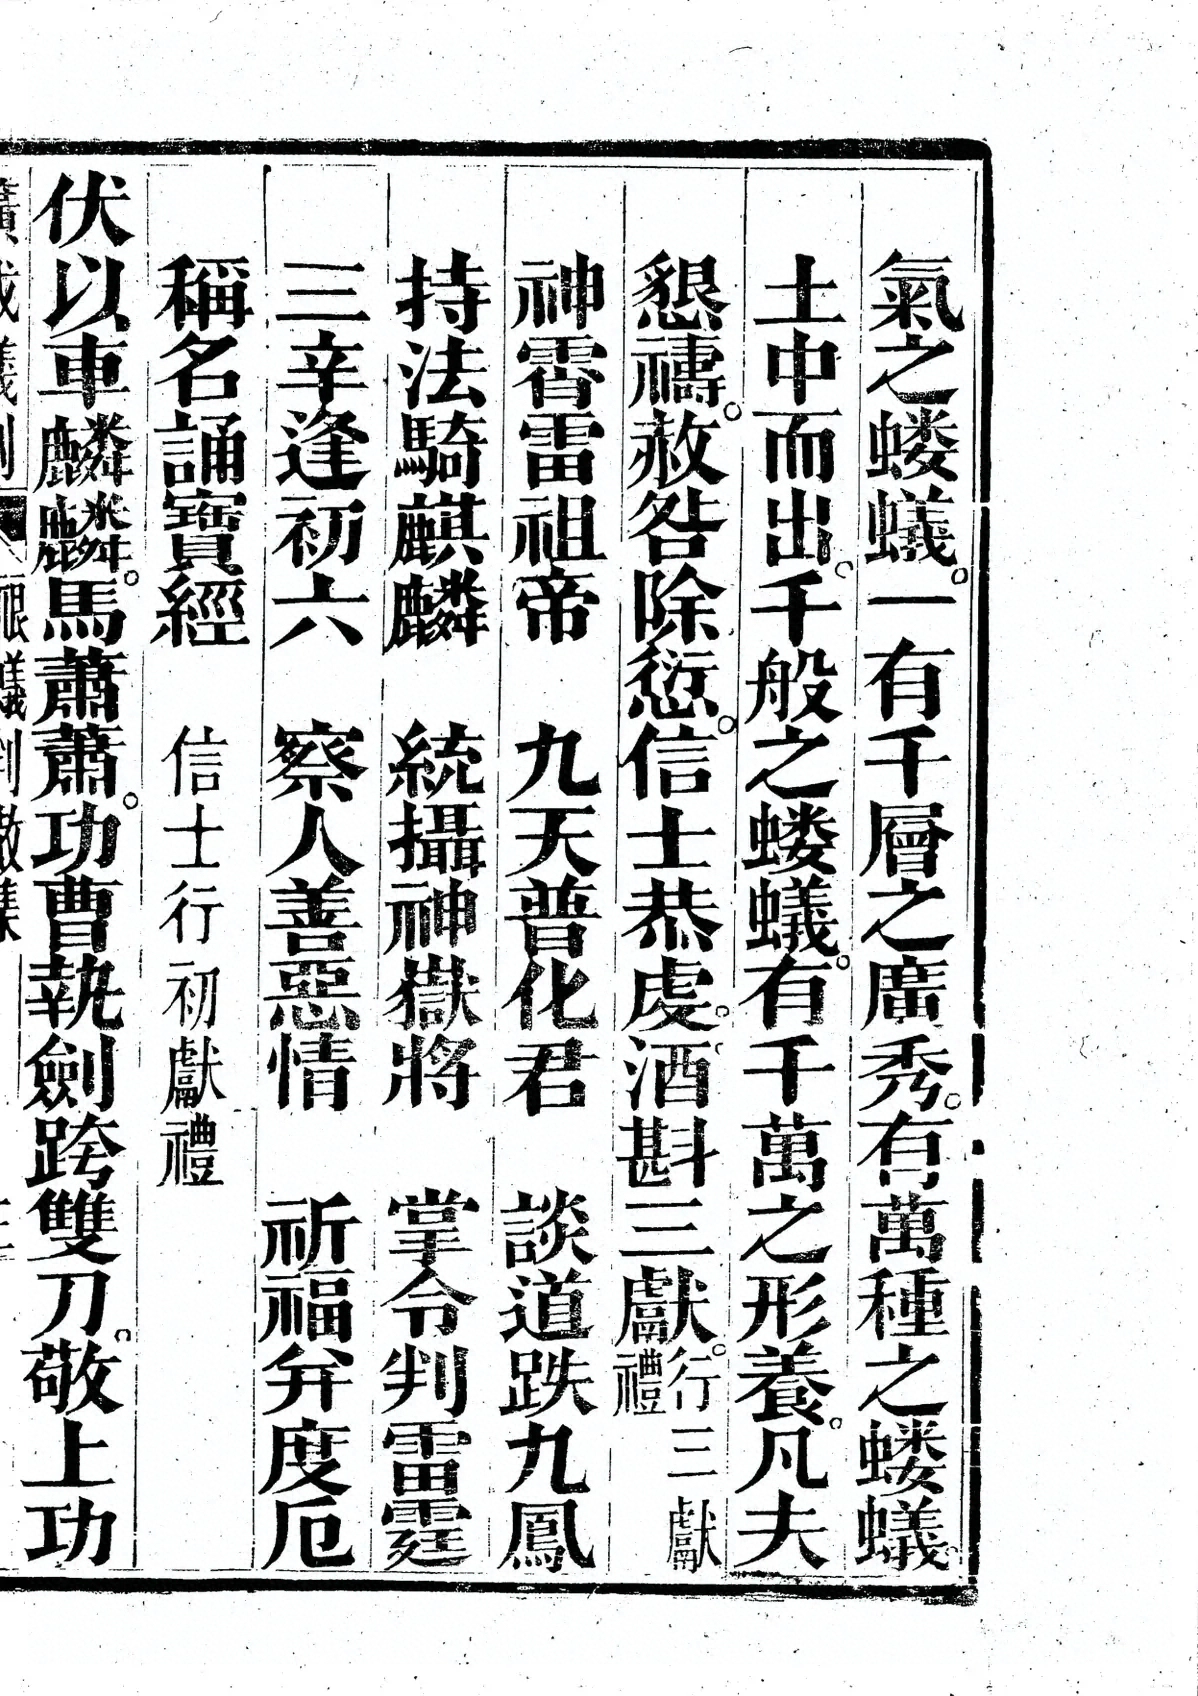 氣之蝼蟻。一有千層之廣秀。有萬種之蝼蟻。
土中而出。千般之蝼蟻。有千萬之形養。凡夫
懇禱。赦咎除愆。信士恭虔。酒斟三獻。行三獻禮
神霄雷祖帝　九天普化君　談道跌九鳳
持法騎麒麟　統攝神嶽將　掌令判雷霆
三辛逢初六　察人善惡情　祈福弁度厄
稱名誦寶經　信士行初獻禮
伏以車麟麟。馬蕭蕭。功曹執劍跨雙刀。敬上功
廣成儀制